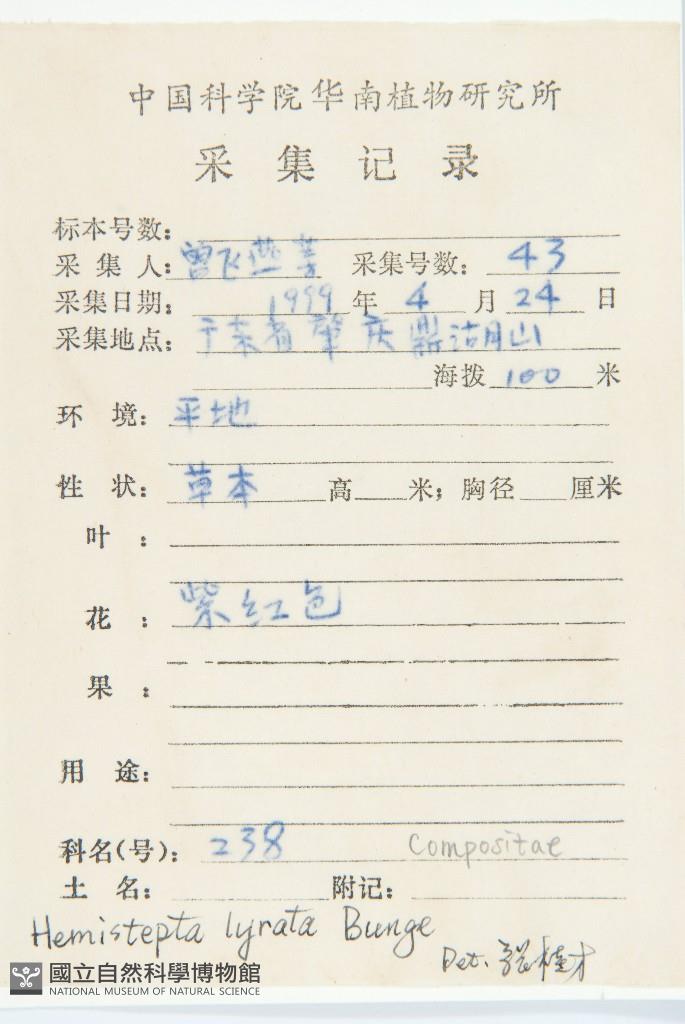 中国科学院华南植物研究所
采集记录
标本号数：
采集人：曾飞燕等 采集号数：43
采集日期：1999年4月24日
采集地点：广东省肇庆鼎湖山
海拨100米
环境：平地
性状：草本 高 米；胸径 厘米
叶：
花：紫红色
果：
用途：
科名(号)：238 Compositae
土名： 附记：
Hemistepta lyrata Bunge
Det.
國立自然科學博物館
NATIONAL MUSEUM OF NATURAL SCIENCE